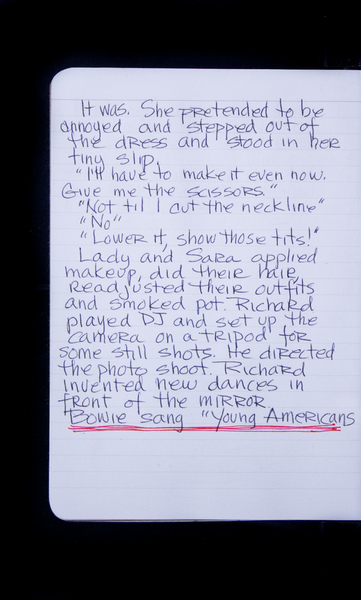 It was. She pretended to be
annoyed and stepped out of
the dress and stood in her
tiny slip.
"I'll have to make it even now.
Give me the scissors."
"Not til I cut the neckline"
"No"
"Lower it, show those tits!"
Lady and Sara applied
makeup, did their hair,
Readjusted their outfits
and smoked pot. Richard
played DJ and set up the
camera on a tripod for
some still shots. He directed
the photo shoot. Richard
invented new dances in
front of the mirror
Bowie sang "Young Americans